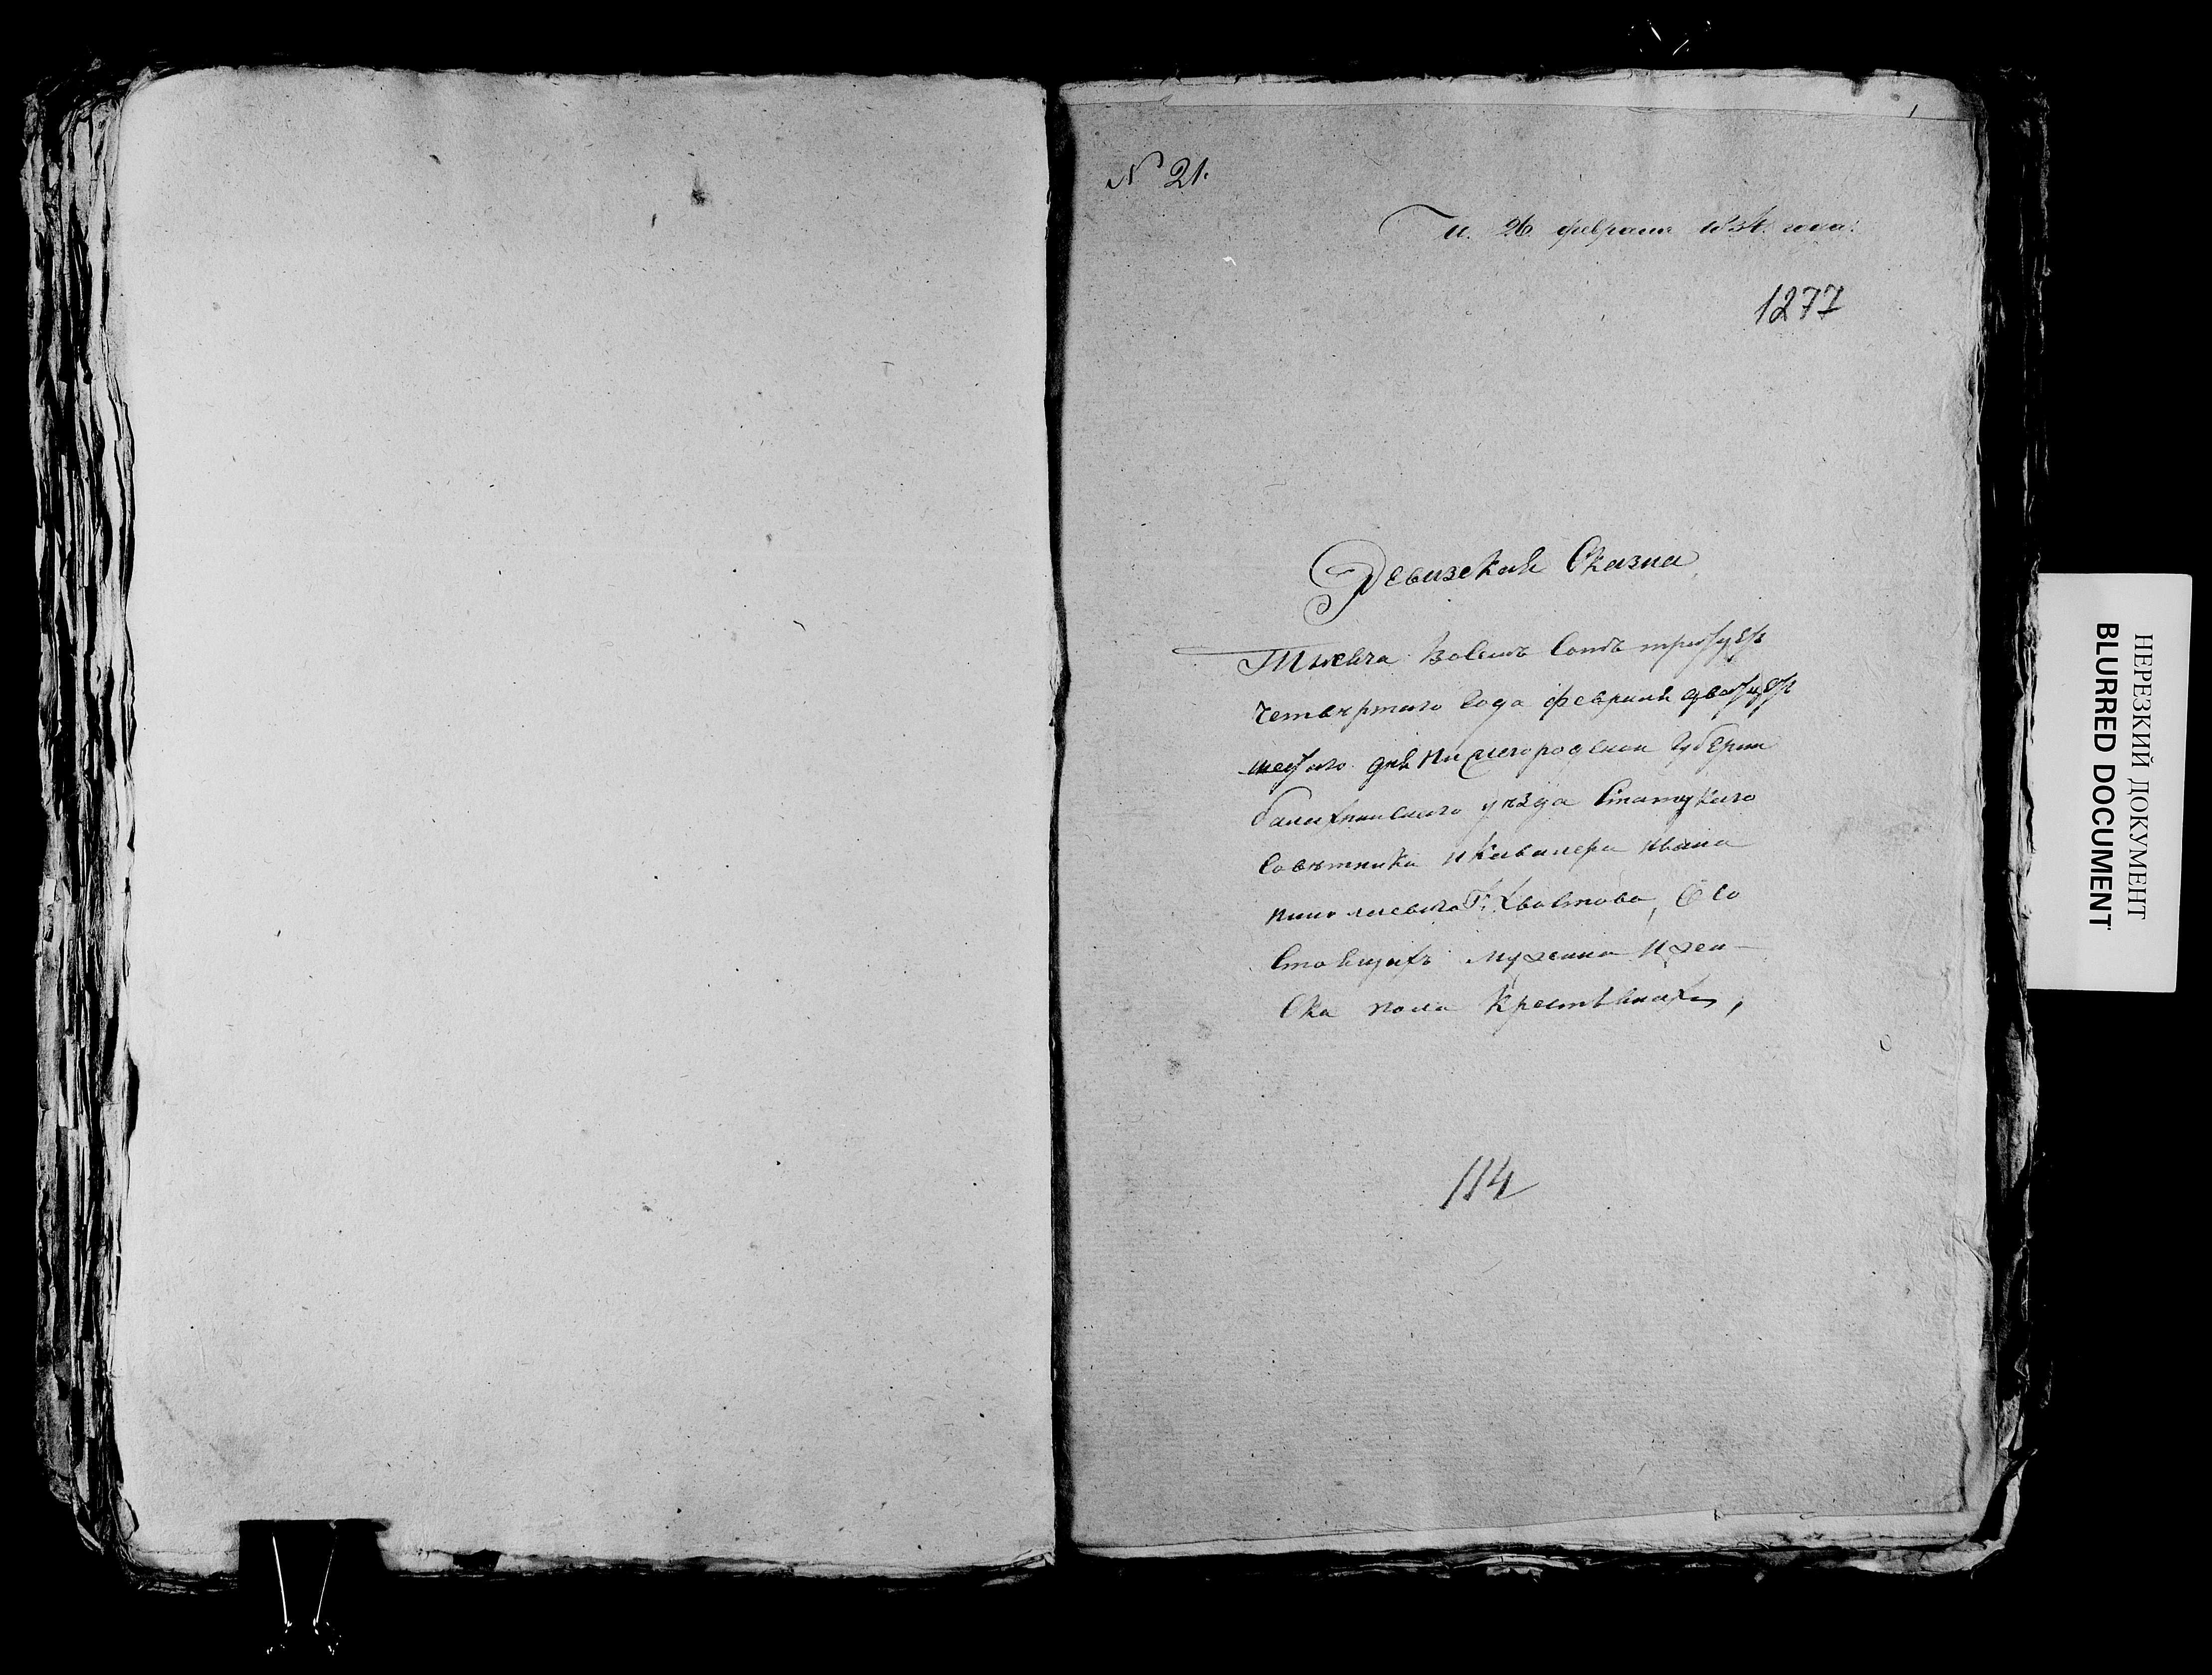 N 21.
П. 26 февраля 1834. года:
1277
Ревизская Сказка
Тысеча Восемь Сотъ тридцеть
Четвертаго Года февраля двадцеть
шестаго дня Нижегородской Губернии
балахнинскаго уѣзда Статцкаго
Совѣтника И Кавалера Ивана
Г. Хвостова, О Со
Стоящихъ Мужеска И жен-
Ска пола Крестьянахъ,
114
НЕРЕЗКИЙ ДОКУМЕНТ
BLURRED DOCUMENT